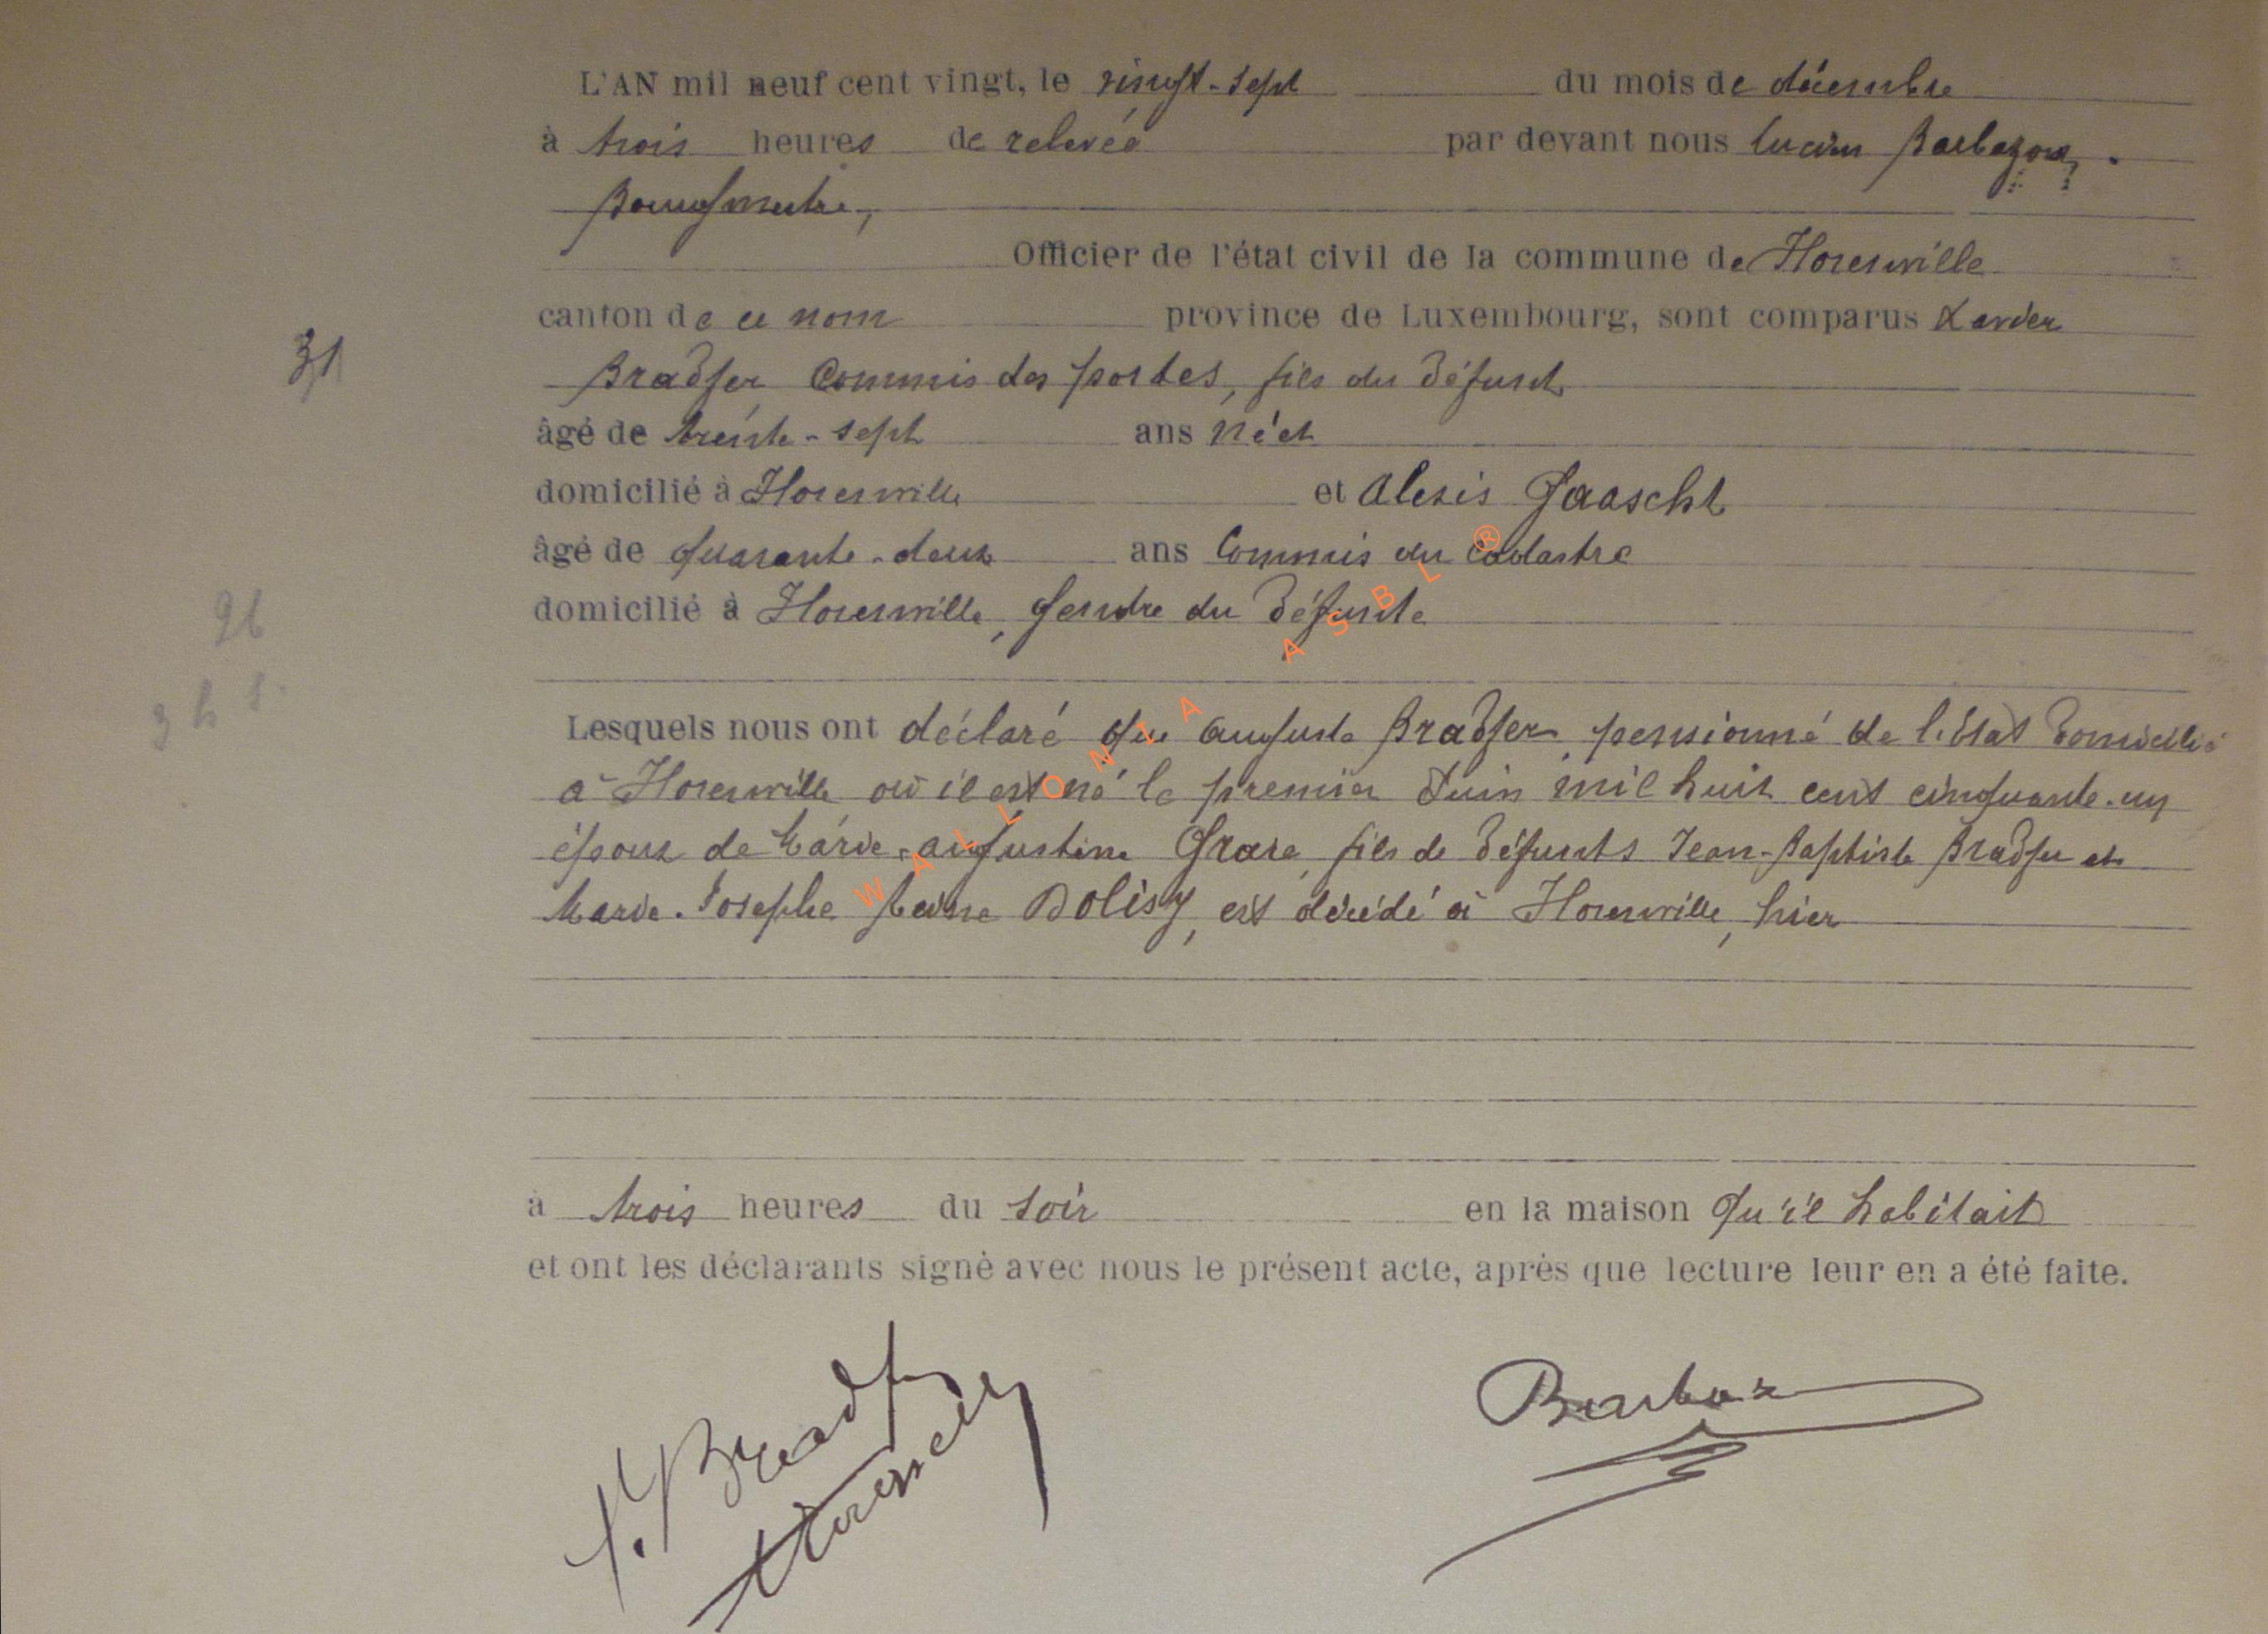 L'AN mil neuf cent vingt, le vingt-sept du mois de décembre
à trois heures de relevée par devant nous Lucien Barbazon,
Bourgmestre,
Officier de l'état civil de la commune de Florenville
canton de ce nom province de Luxembourg, sont comparus Xavier
31
Bradfer Commis des postes, fils du défunt
âgé de trente-sept ans né et
domicilié à Florenville et Alexis Gaascht
âgé de quarante-deux ans Commis du Cadastre
domicilié à Florenville, gendre du défunte
26
3 h s.
Lesquels nous ont déclaré que Auguste Bradfer, pensionné de l'Etat domicilié
à Florenville où il est né le premier Juin mil huit cent cinquante-un
époux de Marie-Augustine Grave, fils de défunts Jean-Baptiste Bradfer et
Marie-Josephe Reine Dolisy, est décédé à Florenville, hier
à trois heures du soir en la maison qu'il habitait
et ont les déclarants signé avec nous le présent acte, après que lecture leur en a été faite.
X. Bradfer
WALLONIA ASBL ®